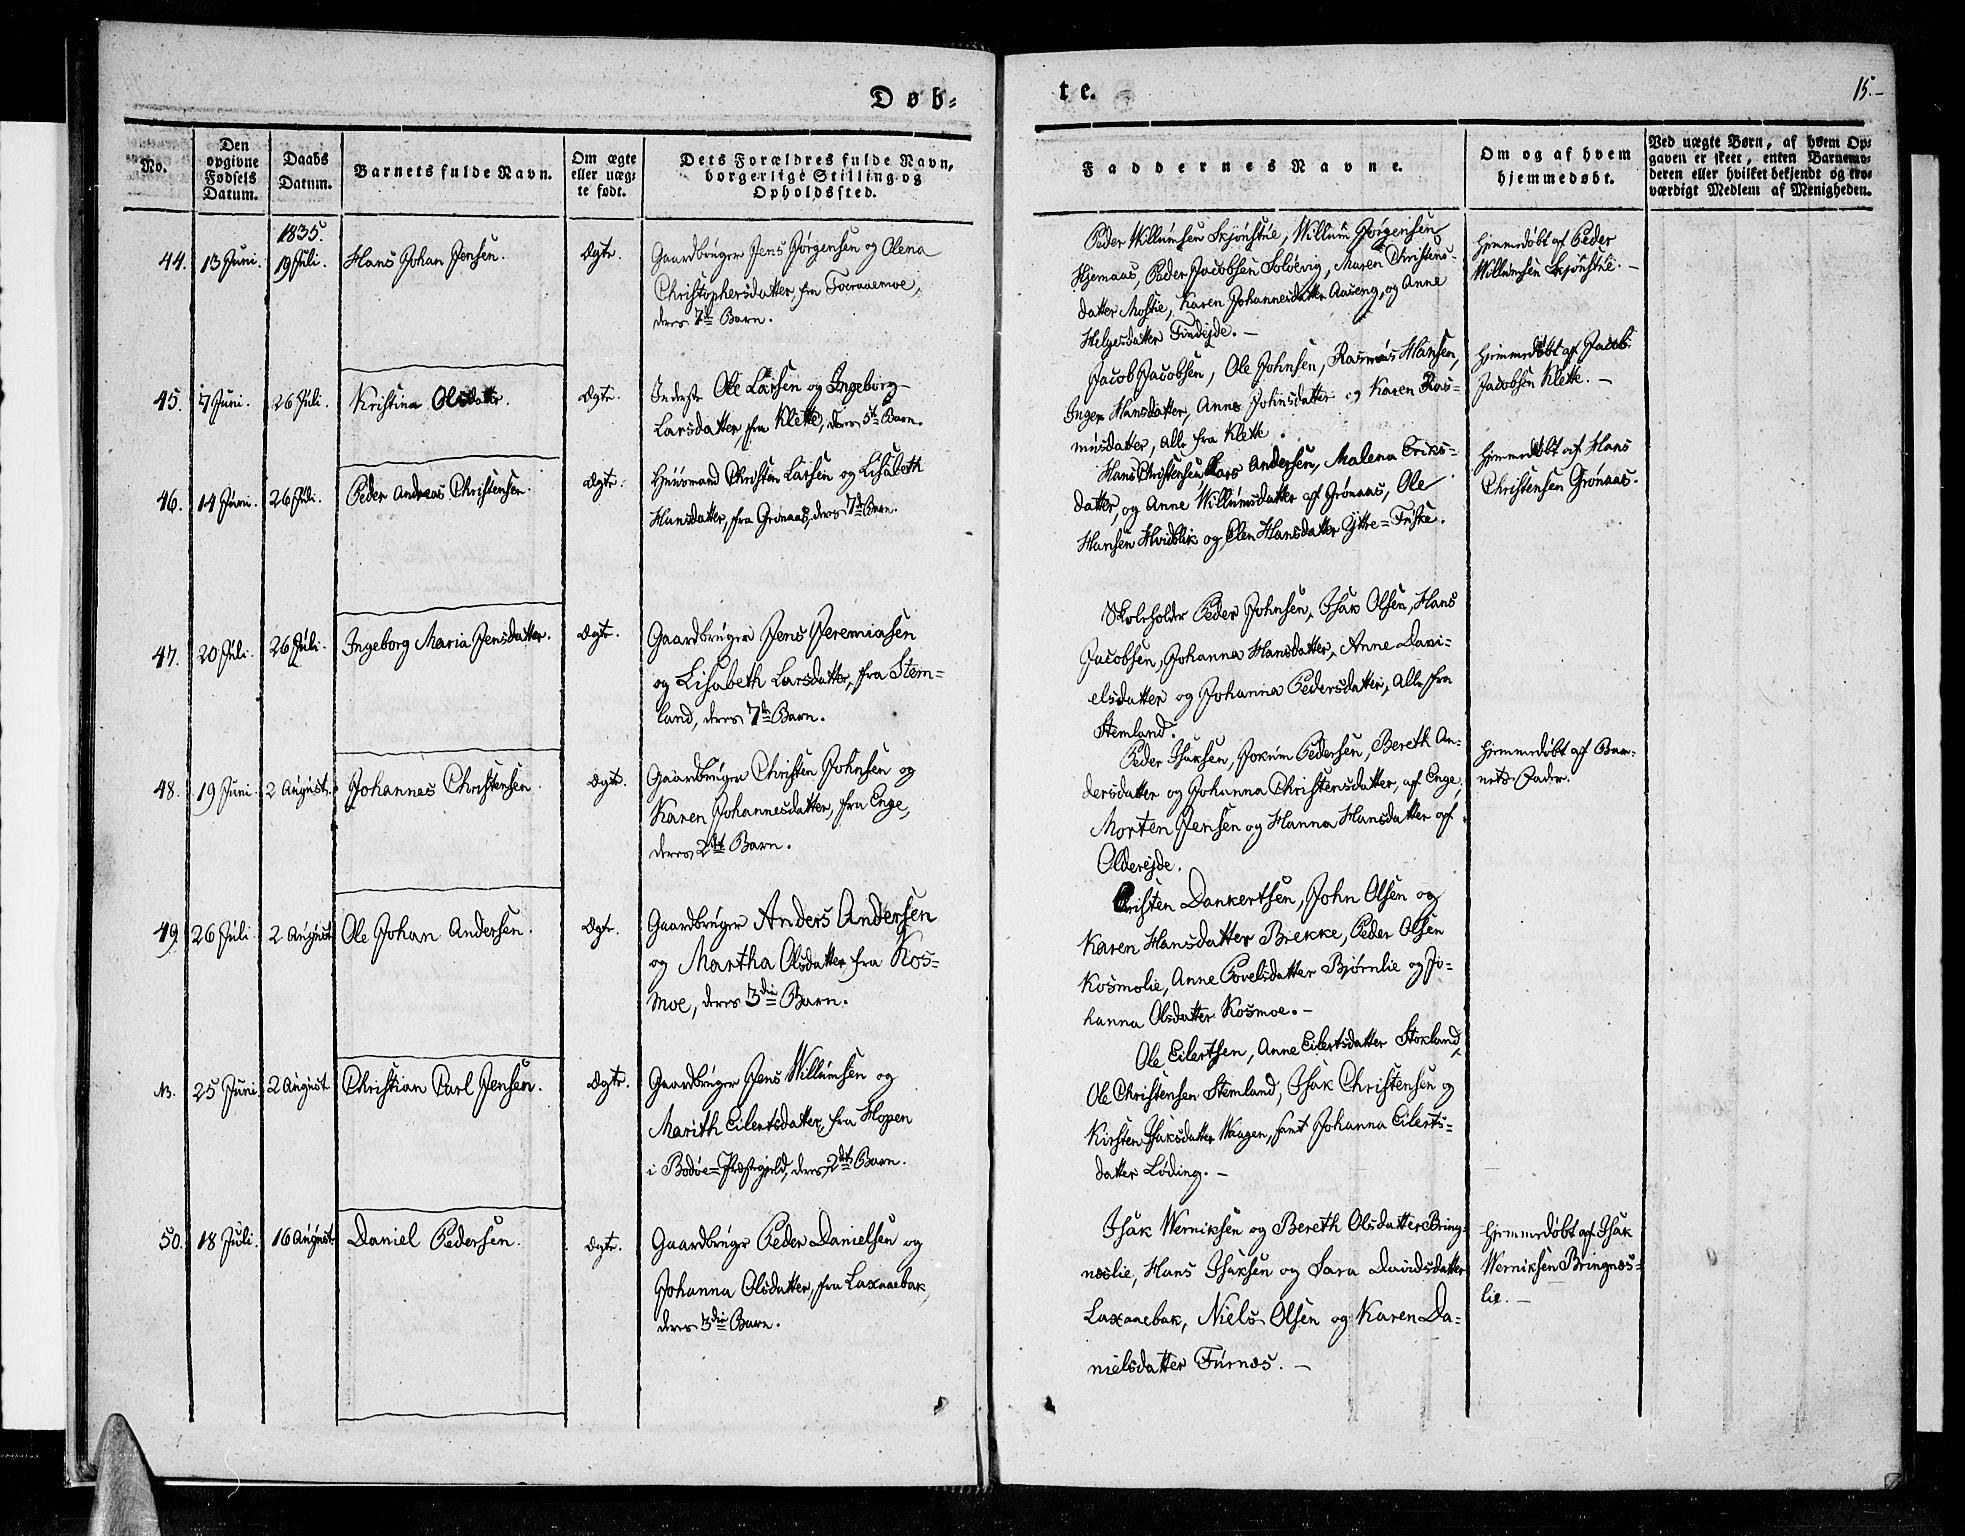 Døb=
te.
15.-
No.
Den
opgivne
Fødsels
Datum.
Daabs
Datum.
Barnets fulde Navn.
Om ægte
eller uæg-
te født.
Dets Forældres fulde Navn,
borgerlige Stilling og
Opholdssted.
Faddernes Navne.
Om og af hvem
hjemmedøbt.
Ved uægte Børn, af hvem Op-
gaven er skeet, enten Barnemo-
deren eller hvilket bekjendt og tro-
værdigt Medlem af Menigheden.
1835.
44. 13 Juni. 19 Juli. Hans Johan Jensen. Ægte.
Gaardbruger Jens Jørgensen og Olena
Christophersdatter, fra Tveraaemoe,
deres 7de Barn.
Peder Willumsen Skjønstue, Willum Jørgensen
Hjemaas, Peder Jacobsen Soløevig, Maren Christens-
datter Mostie, Karen Johannesdatter Aaseng, og Anne
Helgesdatter Findejde. -
Hjemmedøbt af Peder
Willumsen Skjønstue. -
45. 7 Juni. 26 Juli. Kristina Olsdatter. Ægte.
Inderste Ole Larsen og Ingeborg
Larsdatter, fra Klette, deres 5te Barn.
Jacob Jacobsen, Ole Johnsen, Rasmus Hansen,
Inger Hansdatter, Anne Johnsdatter og Karen Ras-
musdatter, alle fra Klette.
Hjemmedøbt af Jacob
Jacobsen Klette. -
46. 14 Juni. 26 Juli. Peder Andreas Christensen. Ægte.
Huusmand Christen Larsen og Lisabeth
Hansdatter, fra Grønaas, deres 7de Barn.
Hans Christensen, Lars Andersen, Malena Eriks-
datter, og Anne Willumsdatter af Grønaas, Ole
Hansen Hvidblik og Elen Hansdatter Yttre=Fuske.
Hjemmedøbt af Hans
Christensen Grønaas.
47. 20 Juli. 26 Juli. Ingeborg Maria Jensdatter. Ægte.
Gaardbruger Jens Jeremiasen
og Lisabeth Larsdatter, fra Stem-
land, deres 7de Barn.
Skoleholder Peder Johnsen, Isak Olsen, Hans
Jacobsen, Johanna Hansdatter, Anne Dani-
elsdatter og Johanna Pedersdatter, alle fra
Stemland.
48. 19 Juni. 2 August. Johannes Christensen. Ægte.
Gaardbruger Christen Johnsen og
Karen Johannesdatter, fra Enge,
deres 2det Barn.
Peder Isaksen, Jokum Pedersen, Bereth An-
dersdatter og Johanna Christensdatter, af Enge,
Morten Jensen og Hanna Hansdatter af
Olderejde.
Hjemmedøbt af Bar-
nets Fader.
49. 26 Juli. 2 August. Ole Johan Andersen. Ægte.
Gaardbruger Anders Andersen
og Martha Olsdatter fra Kos-
moe, deres 3die Barn.
Christen Dankertsen, John Olsen og
Karen Hansdatter Brekke, Peder Olsen
Kosmolie, Anne Povelsdatter Bjørnlie og Jo-
hanna Olsdatter Kosmoe. -
N. 25 Juni. 2 August. Christian Carl Jensen. Ægte.
Gaardbruger Jens Willumsen og
Marith Eilertsdatter, fra Hopen
i Bodøe=Præstegjeld, deres 2det Barn.
Ole Eilertsen, Anne Eilertsdatter Stokland,
Ole Christensen Stemland, Isak Christensen og
Kirsten Isaksdatter Waagen, samt Johanna Eilerts-
datter Løding. -
50. 18 Juli. 16 August. Daniel Pedersen. Ægte.
Gaardbruger Peder Danielsen og
Johanna Olsdatter, fra Laxaaebak,
deres 3die Barn.
Isak Werniksen og Bereth Olsdatter Bring-
næslie, Hans Isaksen og Sara Davidsdatter
Laxaaebak, Niels Olsen og Karen Da-
nielsdatter Furnæs. -
Hjemmedøbt af Isak
Werniksen Bringnæs-
lie. -